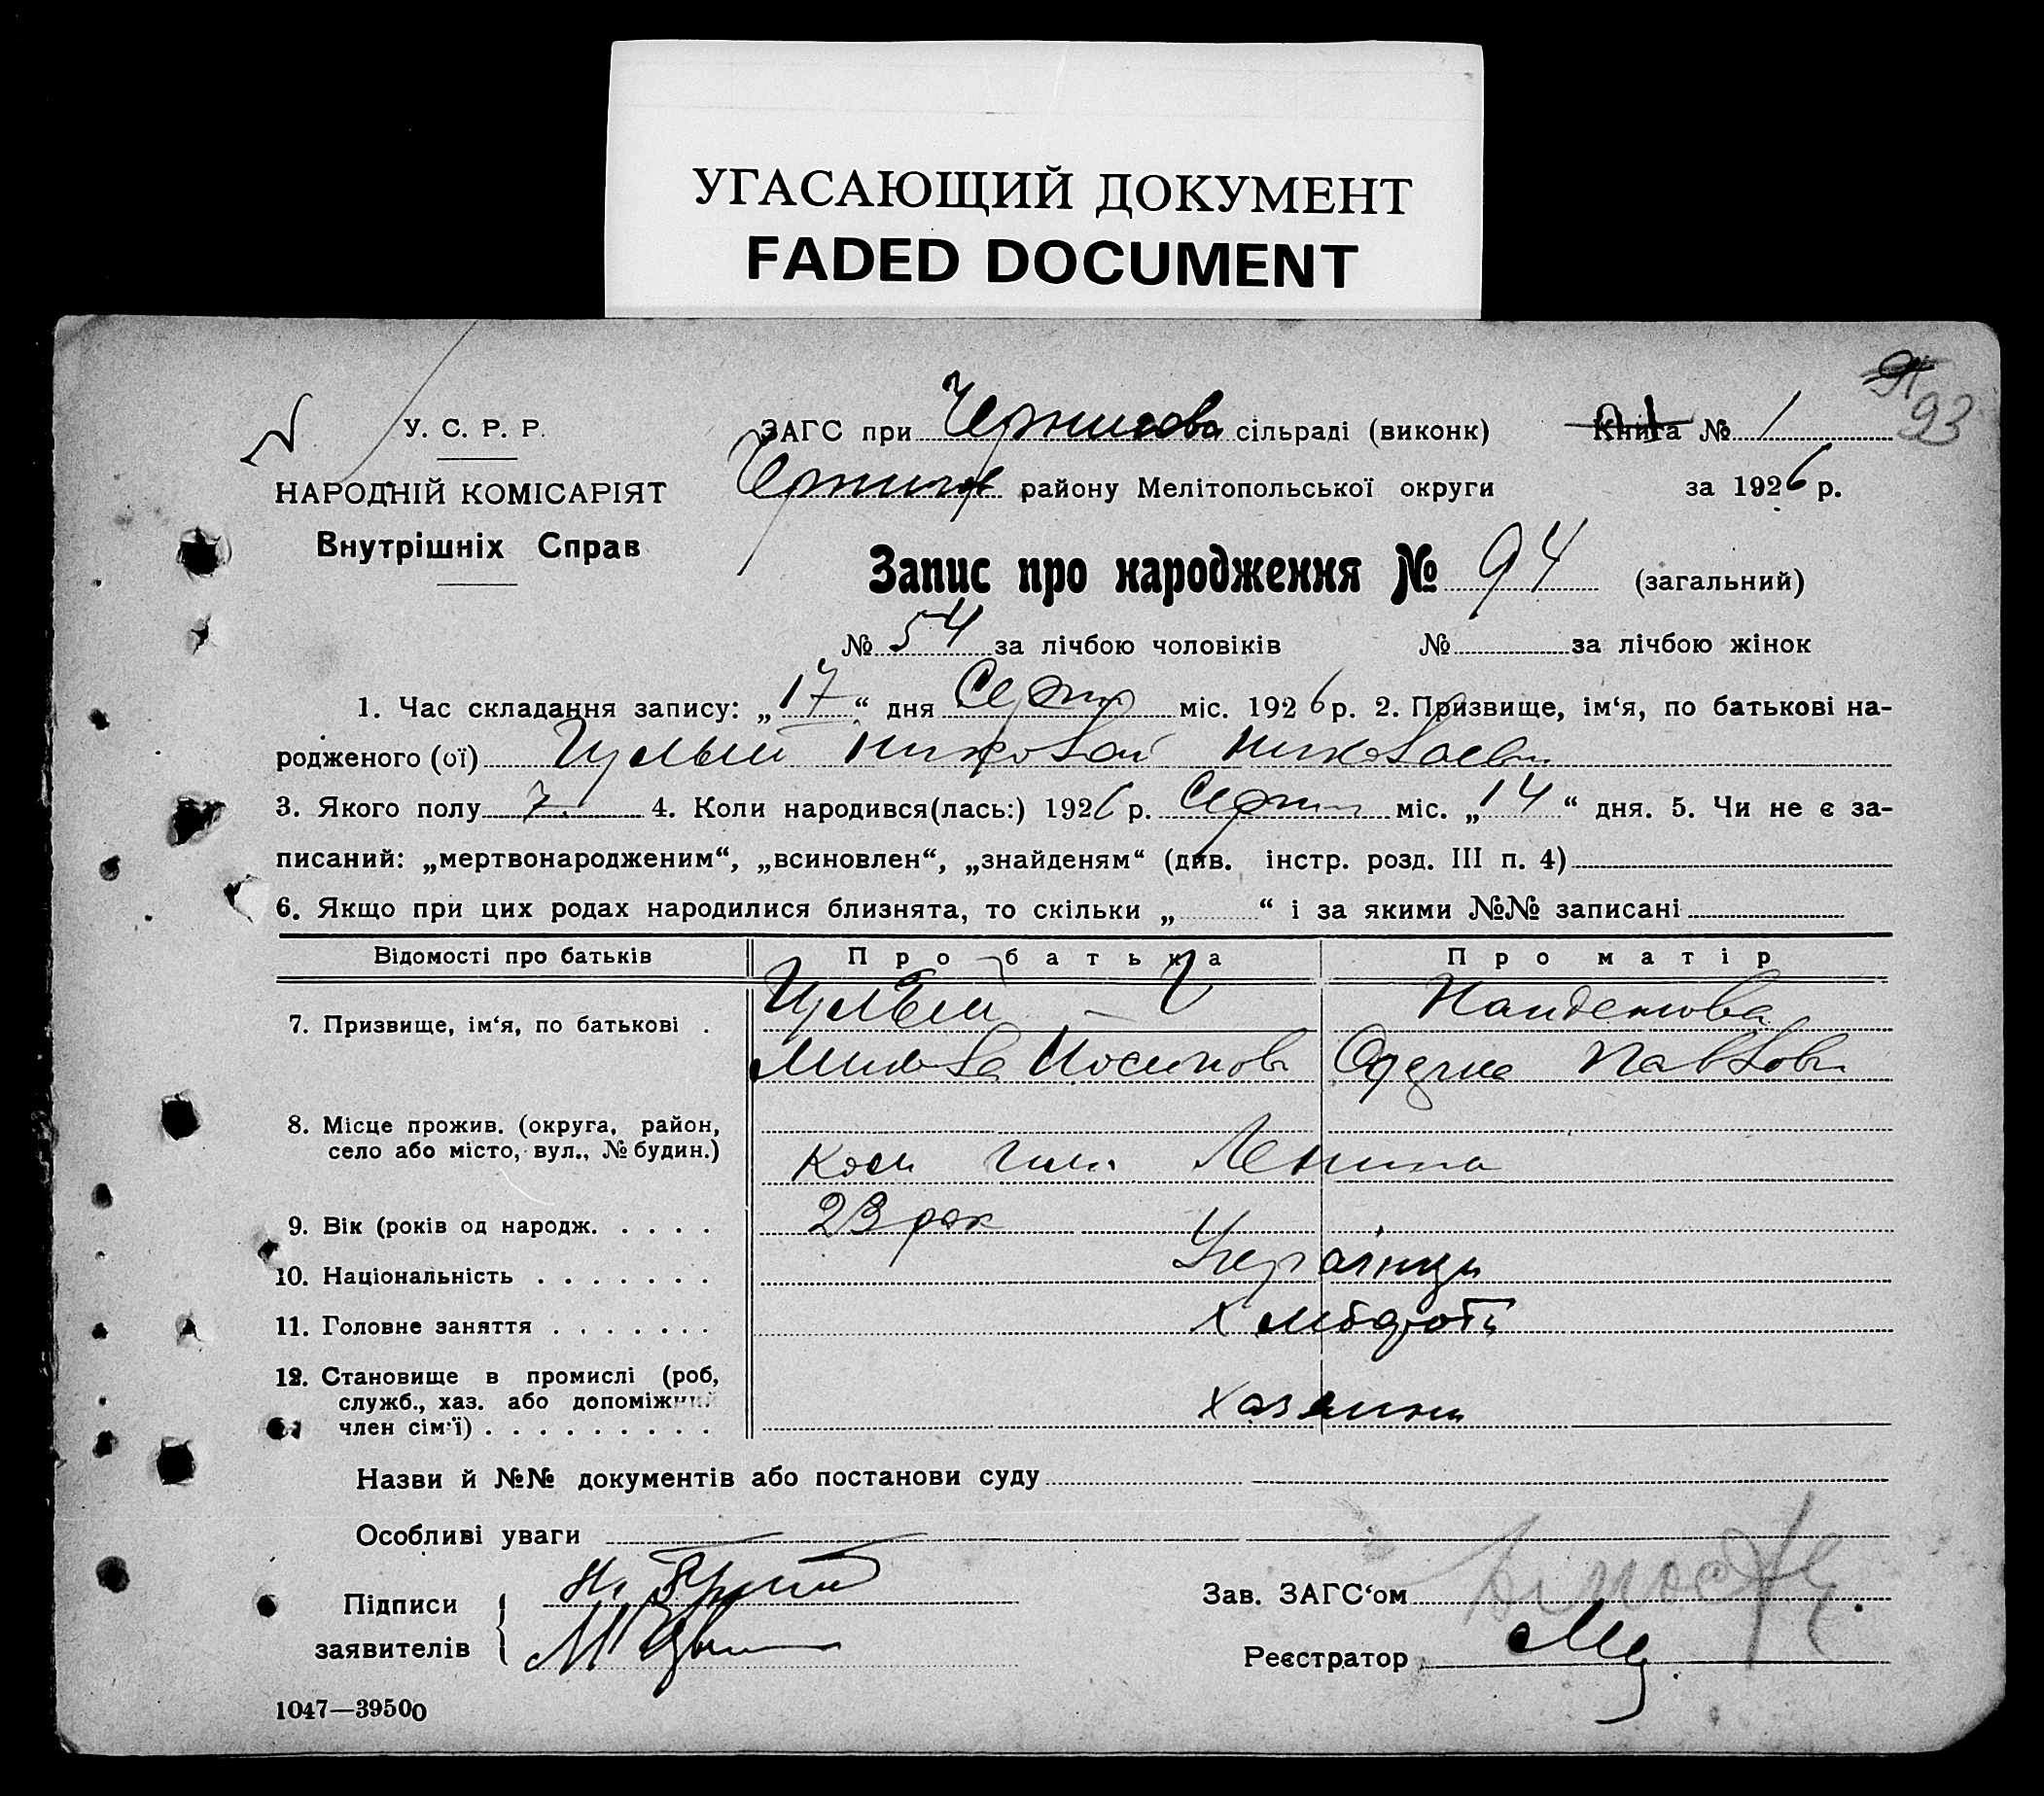 УГАСАЮЩИЙ ДОКУМЕНТ
FADED DOCUMENT
93
У. С. Р. Р.
ЗАГС при сільраді (виконк)
Книга № 1
НАРОДНІЙ КОМІСАРІЯТ
району Мелітопольської округи
за 1926 р.
Внутрішніх Справ
Запис про народження № 94 (загальний)
№ 54 за лічбою чоловіків № за лічбою жінок
1. Час складання запису: „17“ дня Серпн міс. 1926 р. 2. Призвище, ім‘я, по батькові на-
родженого (ої) Цулый Николай Николаевич
3. Якого полу 4. Коли народився(лась:) 1926 р. Серпн міс. „14“ дня. 5. Чи не є за-
писаний: „мертвонародженим“, „всиновлен“, „знайденям“ (див. інстр. розд. III п. 4)
6. Якщо при цих родах народилися близнята, то скільки „ “ і за якими №№ записані
Відомості про батьків Про батька Про матір
7. Призвище, ім‘я, по батькові .
Цулый
Павлов
8. Місце прожив. (округа, район,
село або місто, вул., № будин.)
Ленина
9. Вік (років од народж. . . . . 23 рок
10. Національність . . . . . . . Українци
11. Головне заняття . . . . . . . Хлібороби
12. Становище в промислі (роб,
служб., хаз. або допоміжний
член сім‘ї) . . . . . . . . .
Назви й №№ документів або постанови суду
Особливі уваги
Підписи
заявителів
Зав. ЗАГС‘ом
Реєстратор
1047—39500